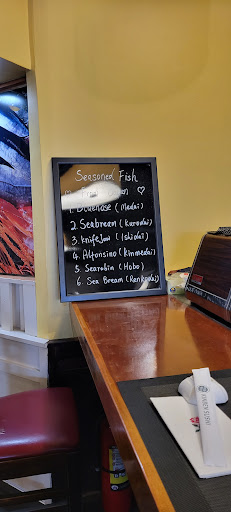 Seasoned Fish
♡ ♡
1. Bluenose (Medai)
2. Seabream (Kurodai)
3. Knifejaw (Ishidai)
4. Alfonsino (Kinmedai)
5. Searobin (Hobo)
6. Sea Bream (Renkodai)